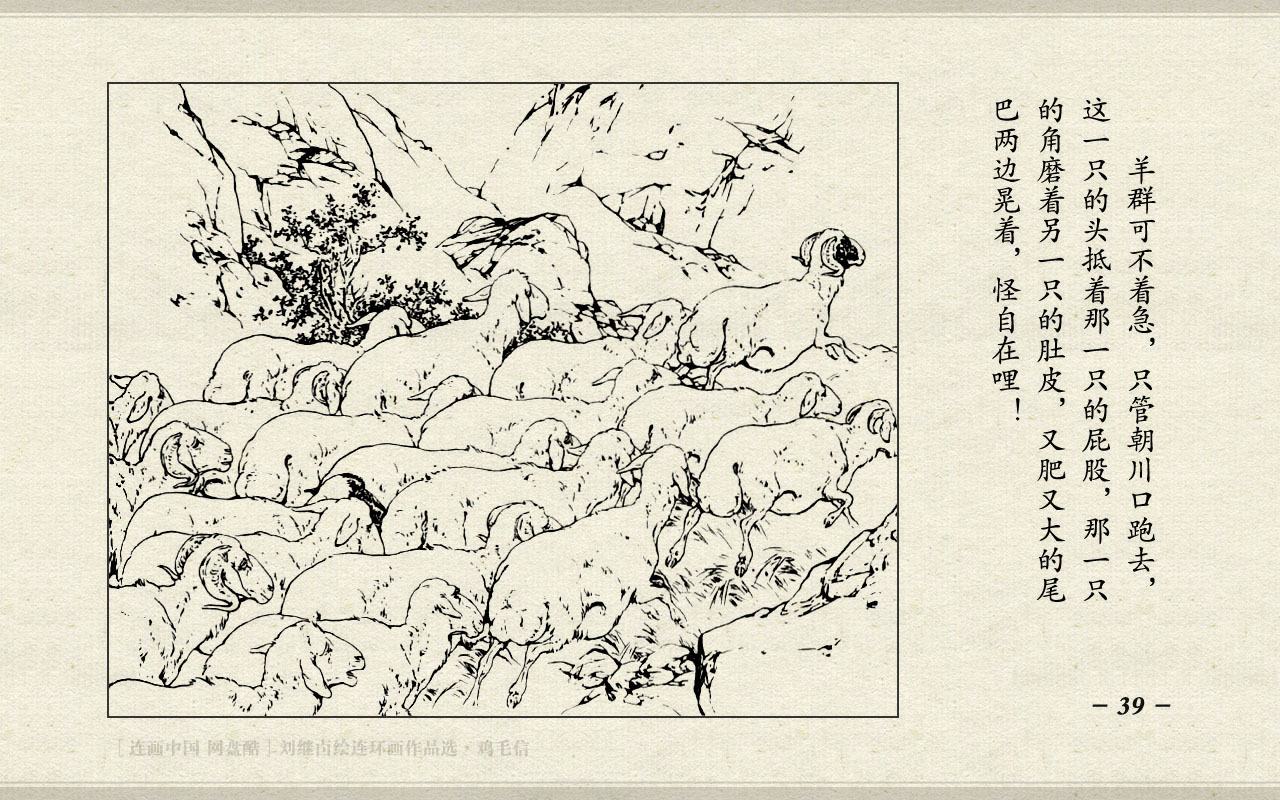 羊群可不着急，只管朝川口跑去，
这一只的头抵着那一只的屁股，那一只
的角磨着另一只的肚皮，又肥又大的尾
巴两边晃着，怪自在哩！
– 39 –
[ 连画中国 网盘酷 ] 刘继卣绘连环画作品选·鸡毛信